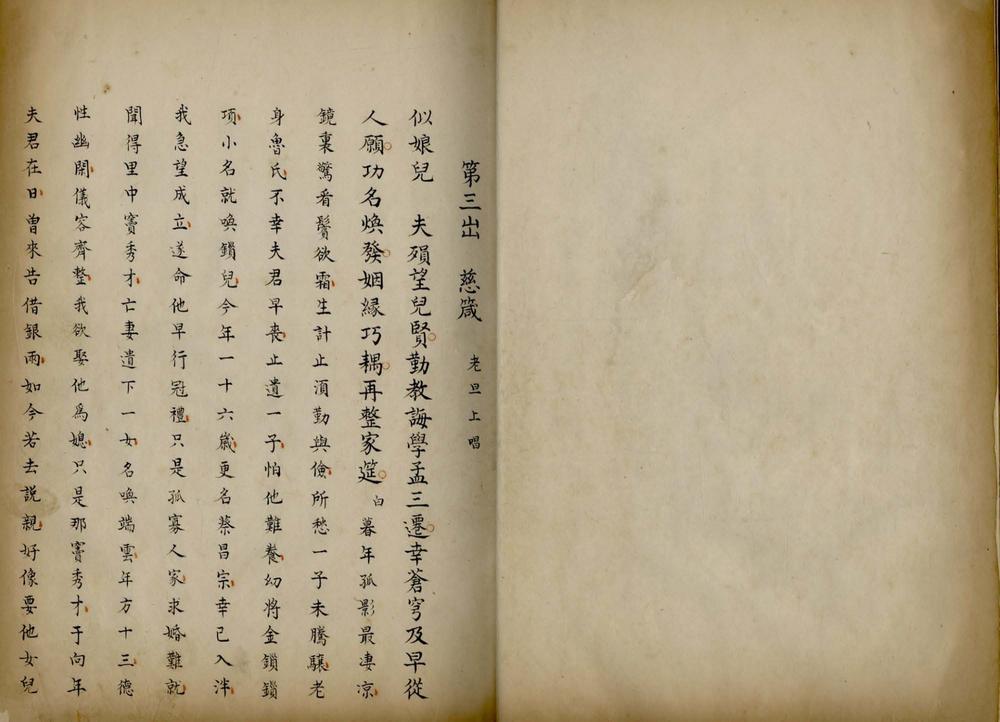 第三出 慈箴 老旦上唱
似娘兒 夫殞望兒賢勤教誨學孟三遷幸蒼穹及早從
人願功名煥發姻緣巧耦再整家筵 白 暮年孤影最凄凉
鏡裏驚看鬢欲霜生計止湏勤與儉所愁一子未騰驤老
身魯氏不幸夫君早喪止遺一子怕他難養幻將金鎖鎖
項小名就喚鎖兒今年一十六歲更名蔡昌宗幸已入泮
我急望成立遂命他早行冠禮只是孤寡人家求婚難就
聞得里中竇秀才亡妻遺下一女名喚端雲年方十三德
性幽閑儀容齊整我欲娶他爲媳只是那竇秀才于向年
夫君在日曽來告借銀兩如今若去説親好像要他女兒